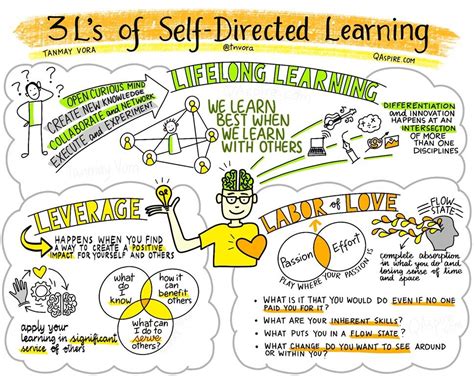 3 L's of Self-Directed Learning
TANMAY VORA
@tnvora
QAspire.com
LIFELONG LEARNING
OPEN CURIOUS MIND
CREATE NEW KNOWLEDGE
COLLABORATE and NETWORK
EXECUTE and EXPERIMENT
WE LEARN
BEST WHEN
WE LEARN
WITH OTHERS
DIFFERENTIATION
and INNOVATION
HAPPENS AT AN
INTERSECTION
OF MORE
THAN ONE
DISCIPLINES
Tanmay Vora
LEVERAGE
HAPPENS WHEN YOU FIND
A WAY TO CREATE A POSITIVE
IMPACT FOR YOURSELF AND OTHERS
what
do I
know
how it can
benefit
others
what can I
do to
serve
others?
apply your
learning in significant
service of others
LABOR of LOVE
Passion
Effort
PLAY WHERE YOUR PASSION IS
FLOW
STATE
complete absorption
in what you do and
losing sense of time
and space
WHAT IS IT THAT YOU WOULD DO EVEN IF NO ONE
PAID YOU FOR IT?
WHAT ARE YOUR INHERENT SKILLS?
WHAT PUTS YOU IN A FLOW STATE?
WHAT CHANGE DO YOU WANT TO SEE AROUND
OR WITHIN YOU?